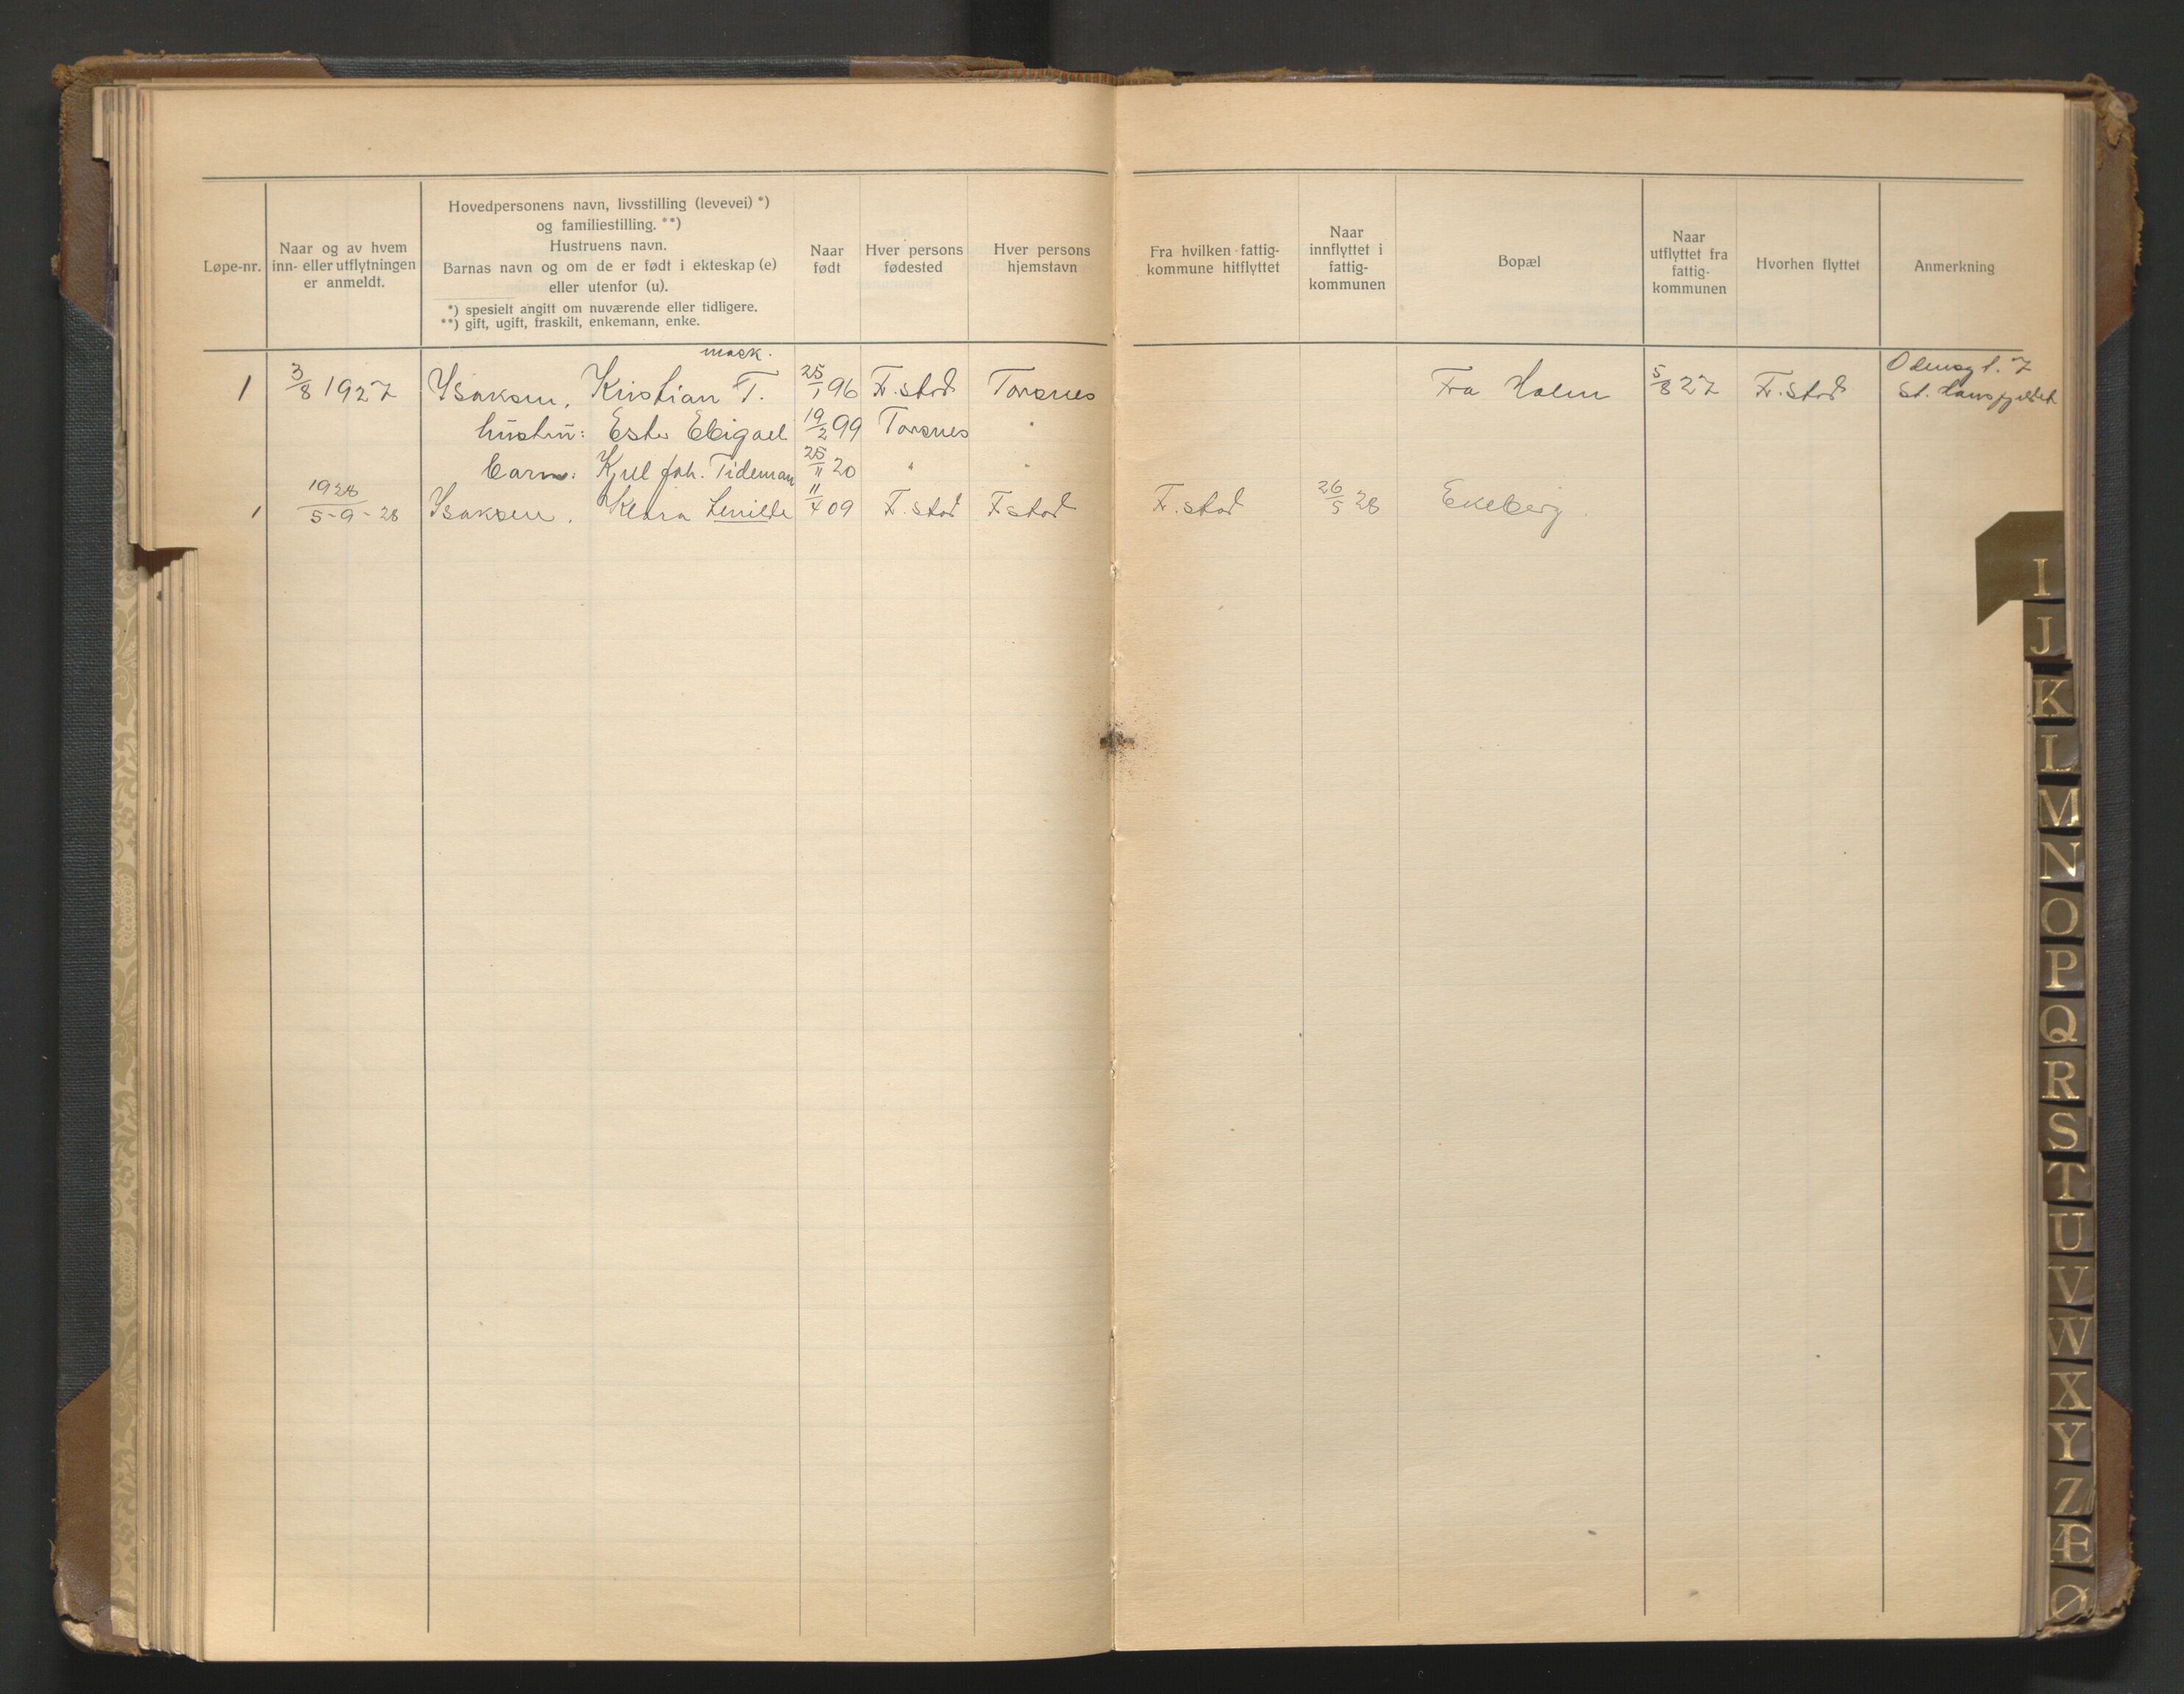 Løpe-nr.
Naar og av hvem
inn- eller utflytningen
er anmeldt.
Hovedpersonens navn, livsstilling (levevei) *)
og familiestilling. **)
Hustruens navn.
Barnas navn og om de er født i ekteskap (e)
eller utenfor (u).
*) spesielt angitt om nuværende eller tidligere.
**) gift, ugift, fraskilt, enkemann, enke.
Naar
født
Hver persons
fødested
Hver persons
hjemstavn
Fra hvilken fattig-
kommune hitflyttet
Naar
innflyttet i
fattig-
kommunen
Bopæl
Naar
utflyttet fra
fattig-
kommunen
Hvorhen flyttet
Anmerkning
mask.
1 3/8 1927 Ysaksen, Kristian T. 25/1 96 F.stad Torsnes Fra Holm 5/8 27 F.stad
St. Hansfjeldet
hustru: Ester Ebigael 19/2 99 Torsnes "
barn: Kjell Joh. Tideman 25/11 20 " "
1928
1 5-9-28 Ysaksen, Klara 11/4 09 F.stad Fstad F.stad 26/5 28 Ekeberg.
I
J
K
L
M
N
O
P
Q
R
S
T
U
V
W
X
Y
Z
Æ
Ø